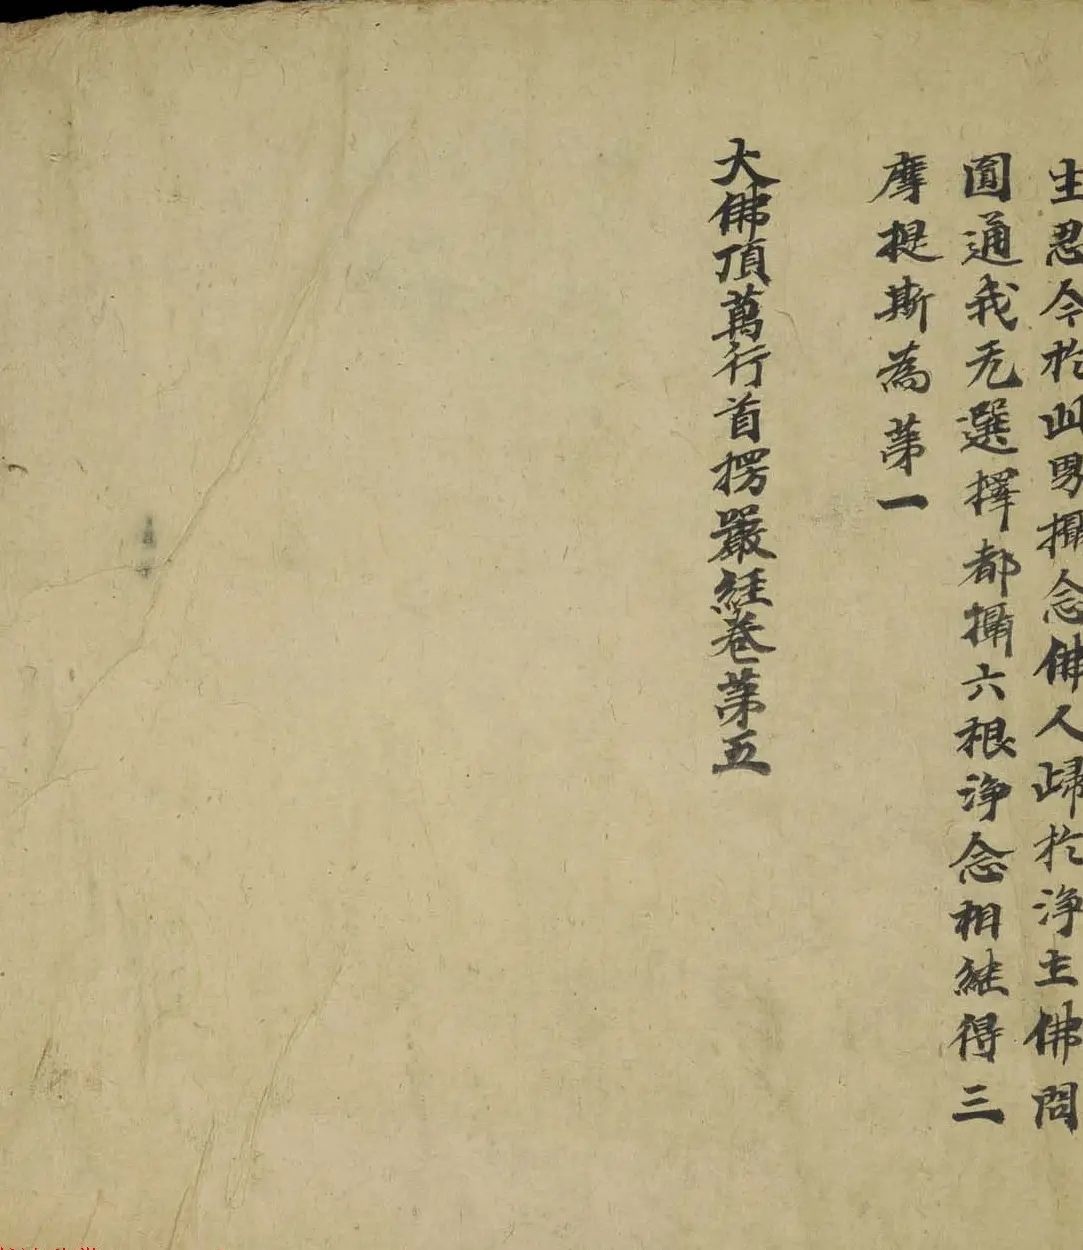 生忍今於此界攝念佛人歸於浄土佛問
圓通我无選擇都攝六根浄念相継得三
摩提斯為第一
大佛頂萬行首楞嚴經卷第五